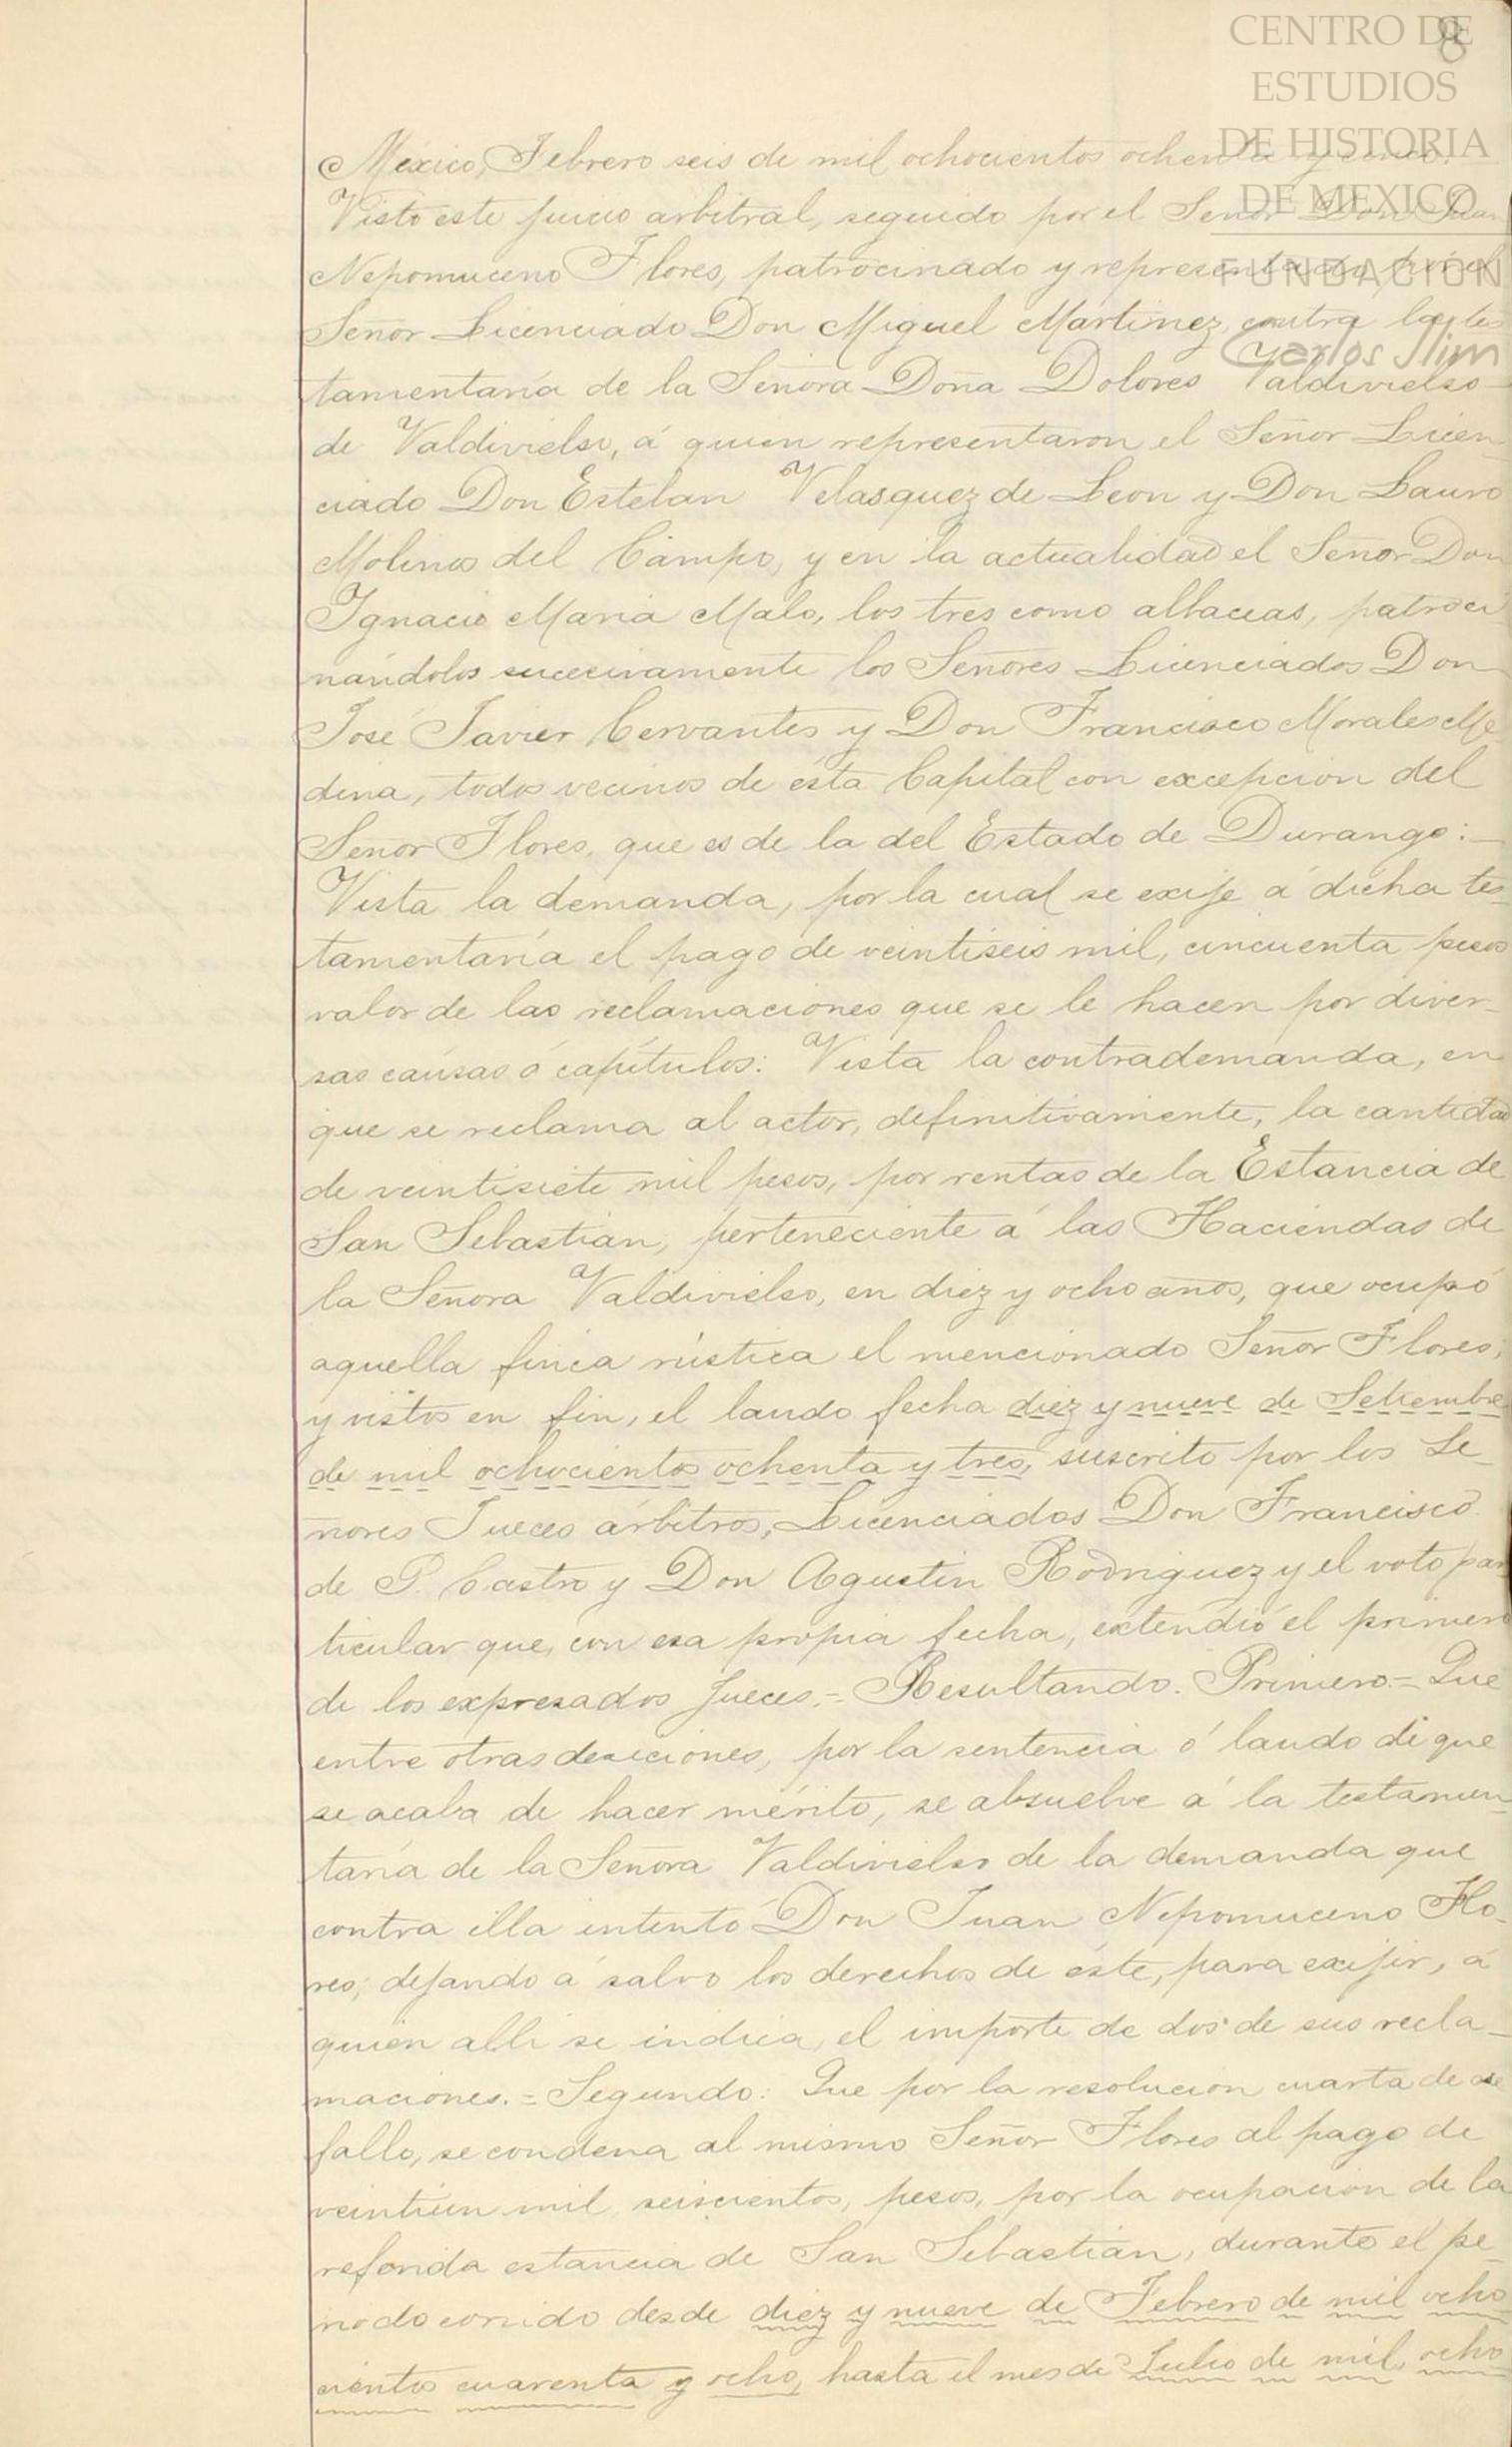 8
CENTRO DE
ESTUDIOS
DE HISTORIA
DE MEXICO
FUNDACIÓN
Carlos Slim
México, Febrero seis de mil ochocientos ochenta y cinco.
Visto este juicio arbitral, seguido por el Señor Don Juan
Nepomuceno Flores, patrocinado y representado, por el
Señor Licenciado Don Miguel Martinez, contra la tes
tamentaría de la Señora Doña Dolores Valdivielso
de Valdivielso, á quien representaron el Señor Licen
ciado Don Esteban Velasquez de Leon y Don Lauro
Molinos del Campo, y en la actualidad el Señor Don
Ignacio Maria Malo, los tres como albaceas, patroci
nándolos sucecivamente los Señores Licenciados Don
José Javier Cervantes y Don Francisco Morales Me
dina, todos vecinos de ésta Capital con excepcion del
Señor Flores, que es de la del Estado de Durango:—
Vista la demanda, por la cual se exije á dicha tes
tamentaría el pago de veintiseis mil, cincuenta pesos
valor de las reclamaciones que se le hacen por diver-
sas causas ó capítulos: Vista la contrademanda, en
que se reclama al actor, definitivamente, la cantidad
de veintisiete mil pesos, por rentas de la Estancia de
San Sebastian, perteneciente á las Haciendas de
la Señora Valdivielso, en diez y ocho años, que ocupó
aquella finca rústica el mencionado Señor Flores;
y vistos en fin, el laudo fecha diez y nueve de Setiembre
de mil ochocientos ochenta y tres, suscrito por los Se-
ñores Jueces árbitros, Licenciados Don Francisco
de P. Castro y Don Agustin Rodriguez y el voto par
ticular que, con esa propia fecha, extendió el primero
de los expresados Jueces.= Resultando. Primero.= Que
entre otras desiciones, por la sentencia ó laudo de que
se acaba de hacer mérito, se absuelve á la testamen
taría de la Señora Valdivielso de la demanda que
contra ella intentó Don Juan Nepomuceno Flo-
res, dejando á salvo los derechos de éste, para exijir, á
quien alli se indica, el importe de dos de sus recla-
maciones.= Segundo: Que por la resolucion cuarta de ese
fallo, se condena al mismo Señor Flores al pago de
veintiun mil, seiscientos, pesos, por la ocupacion de la
referida estancia de San Sebastian, durante el pe-
riodo corrido desde diez y nueve de Febrero de mil ocho
cientos cuarenta y ocho, hasta el mes de Julio de mil, ocho